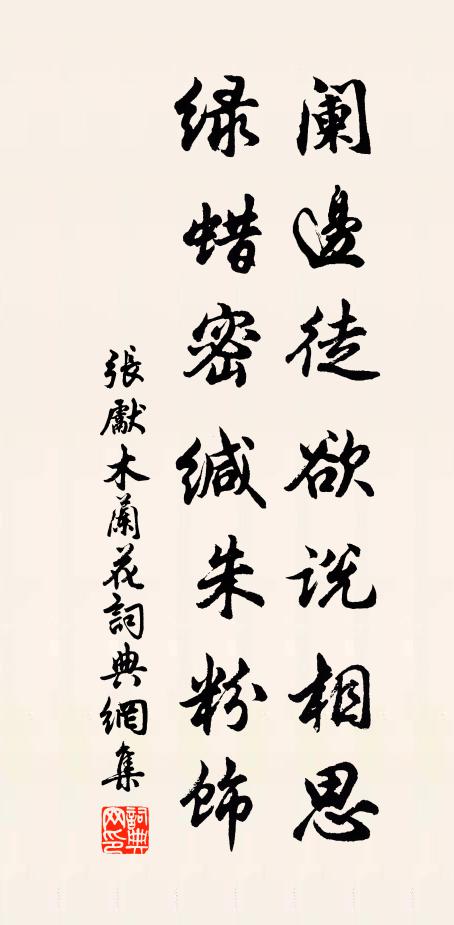 阑邊徒欲说相思
绿蜡密缄朱粉饰
張獻木蘭花詞典網集
詞典網印